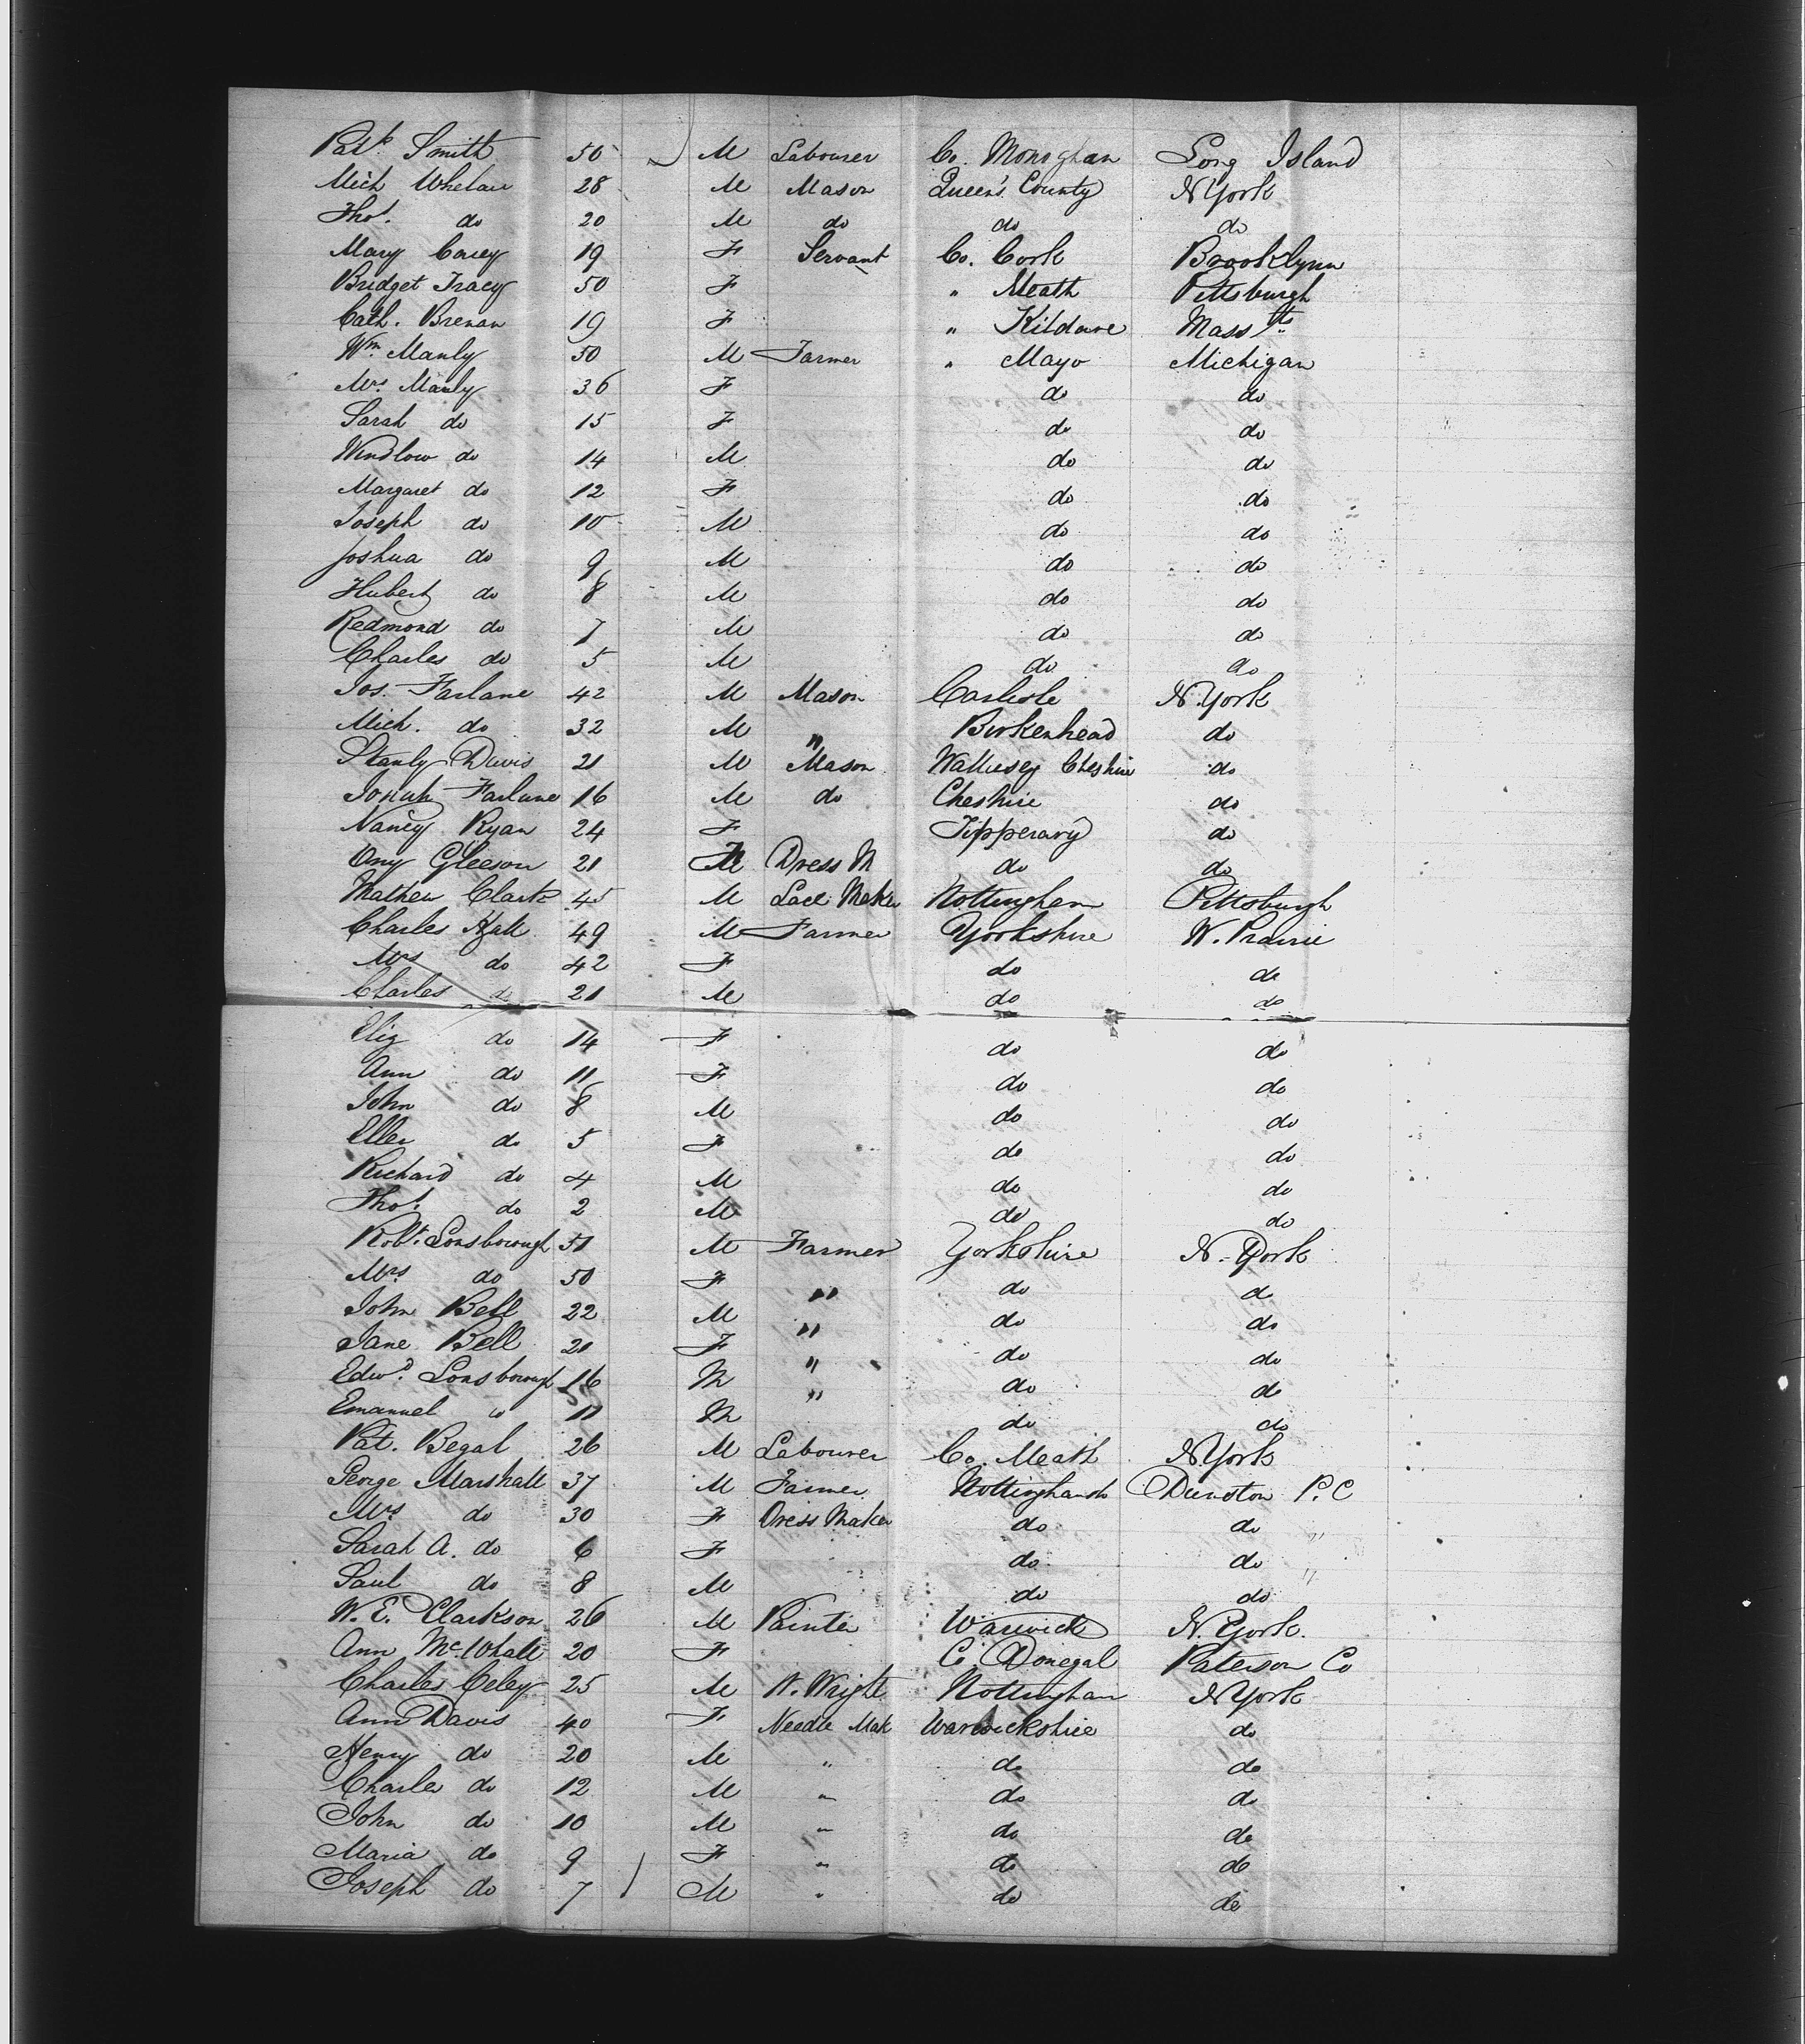 Patk Smith 50 M Labourer Co. Monaghan Long Island
Mich Whelan 28 M Mason Queen's County N York
Thos. do 20 M do do do
Mary Casey 19 F Servant Co. Cork Brooklynn
Bridget Tracy 50 F " Meath Pittsburgh
Cath. Brenan 19 F " Kildare Masstts
Wm. Manly 50 M Farmer " Mayo Michigan
Mrs. Manly 36 F do do
Sarah do 15 F do do
Windlow do 14 M do do
Margaret do 12 F do do
Joseph do 10 M do do
Joshua do 9 M do do
Hubert do 8 M do do
Redmond do 7 M do do
Charles do 5 M do do
Jos. Farlane 42 M Mason Carlisle N. York
Mich. do 32 M " Birkenhead do
Stanly Davis 21 M Mason Wallusey Cheshire do
Jonah Farlane 16 M do Cheshire do
Nancy Ryan 24 F Tipperary do
Ony Gleeson 21 F Dress M do do
Mathew Clark 45 M Lace Maker Nottingham Pittsburgh
Charles Hall 49 M Farmer Yorkshire W. Prairie
Mrs do 42 F do do
Charles do 21 M do do
Eliz do 14 F do do
Ann do 11 F do do
John do 8 M do do
Ellen do 5 F do do
Richard do 4 M do do
Thos. do 2 M do do
Robt. Lonsborough 51 M Farmer Yorkshire N. York
Mrs. do 50 F " do do
John Bell 22 M " do do
Jane Bell 21 F " do do
Edwd. Lonsborough 16 M " do do
Emanuel do 11 M do do
Pat. Begal 26 M Labourer Co. Meath N York
George Marshall 37 M Farmer Nottinghamsh Dunston P. C
Mrs do 30 F Dress Maker do do "
Sarah A. do 6 F do do "
Saul do 8 M do do "
W. E. Clarkson 26 M Painter Warwick N. York.
Ann Mc.Whall 20 F Co. Donegal Paterson Co
Charles Celey 25 M W. Wright Nottingham N York
Ann Davis 40 F Needle Mak Warwickshire do
Henry do 20 M " do do
Charles do 12 M " do do
John do 10 M " do do
Maria do 9 F " do do
Joseph do 7 M " do do